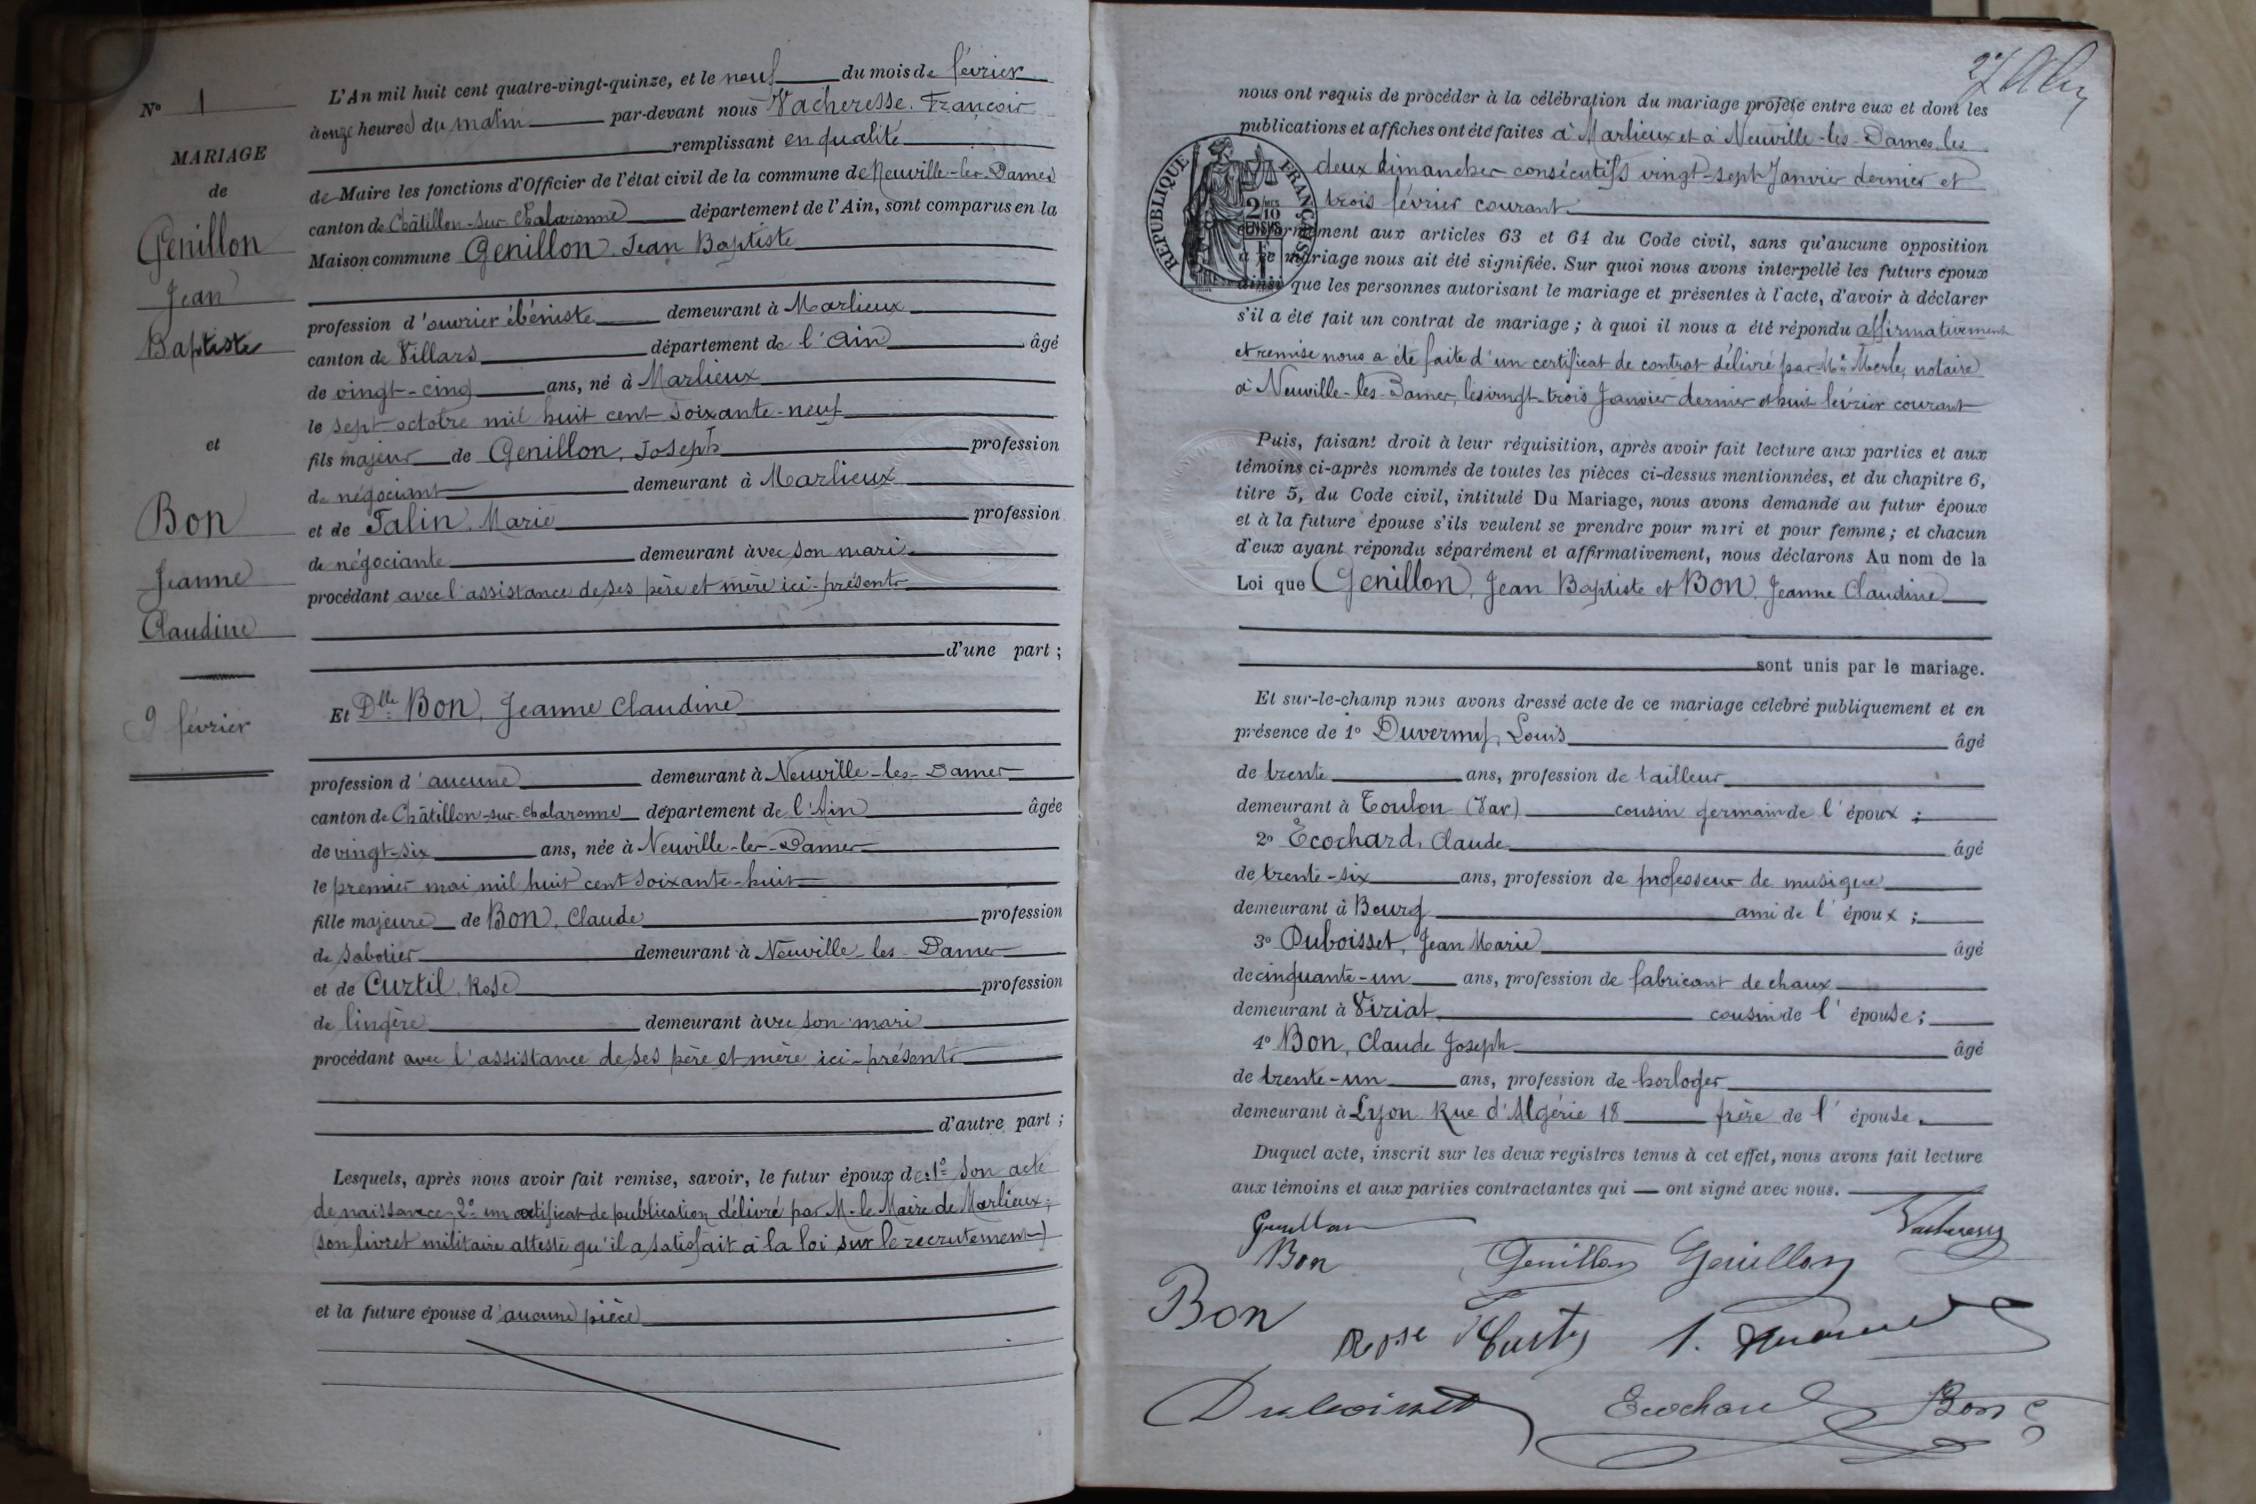 N° 1
MARIAGE
de
Genillon
Jean
Baptiste
et
Bon
Jeanne
Claudine
9 février
L'An mil huit cent quatre-vingt-quinze, et le neuf du mois de février
à onze heures du matin par-devant nous Vacheresse, François
remplissant en qualité
de Maire les fonctions d'Officier de l'état civil de la commune de Neuville-les-Dames
canton de Châtillon-sur-Chalaronne département de l'Ain, sont comparus en la
Maison commune Genillon, Jean Baptiste
profession d'ouvrier ébéniste demeurant à Marlieux
canton de Villars département de l'Ain âgé
de vingt-cinq ans, né à Marlieux
le sept octobre mil huit cent soixante-neuf
fils majeur de Genillon, Joseph profession
de négociant demeurant à Marlieux
et de Talin, Marie profession
de négociante demeurant avec son mari
procédant avec l'assistance de ses père et mère ici-présents
d'une part ;
Et Dlle Bon, Jeanne Claudine
profession d'aucune demeurant à Neuville-les-Dames
canton de Châtillon-sur-Chalaronne département de l'Ain âgée
de vingt-six ans, née à Neuville-les-Dames
le premier mai mil huit cent soixante-huit
fille majeure de Bon, Claude profession
de sabotier demeurant à Neuville-les-Dames
et de Curtil, Rose profession
de lingère demeurant avec son mari
procédant avec l'assistance de ses père et mère ici-présents
d'autre part ;
Lesquels, après nous avoir fait remise, savoir, le futur époux de : 1° son acte
de naissance, 2° un certificat de publication délivré par M. le Maire de Marlieux ;
(son livret militaire atteste qu'il a satisfait à la loi sur le recrutement)
et la future épouse d'aucune pièce
27
nous ont requis de procéder à la célébration du mariage projeté entre eux et dont les
publications et affiches ont été faites à Marlieux et à Neuville-les-Dames, les
deux dimanches consécutifs vingt-sept Janvier dernier et
trois février courant
RÉPUBLIQUE FRANÇAISE
2/10
EN SUS
conformément aux articles 63 et 64 du Code civil, sans qu'aucune opposition
à ce mariage nous ait été signifiée. Sur quoi nous avons interpellé les futurs époux
ainsi que les personnes autorisant le mariage et présentes à l'acte, d'avoir à déclarer
s'il a été fait un contrat de mariage ; à quoi il nous a été répondu affirmativement
et remise nous a été faite d'un certificat de contrat délivré par Me Merle, notaire
à Neuville-les-Dames, les vingt-trois Janvier dernier et huit février courant
Puis, faisant droit à leur réquisition, après avoir fait lecture aux parties et aux
témoins ci-après nommés de toutes les pièces ci-dessus mentionnées, et du chapitre 6,
titre 5, du Code civil, intitulé Du Mariage, nous avons demandé au futur époux
et à la future épouse s'ils veulent se prendre pour mari et pour femme ; et chacun
d'eux ayant répondu séparément et affirmativement, nous déclarons Au nom de la
Loi que Genillon, Jean Baptiste et Bon, Jeanne Claudine
sont unis par le mariage.
Et sur-le-champ nous avons dressé acte de ce mariage célébré publiquement et en
présence de 1° Duvernay, Louis âgé
de trente ans, profession de tailleur
demeurant à Toulon (Var) cousin germain de l'époux ;
2° Ecochard, Claude âgé
de trente-six ans, profession de professeur de musique
demeurant à Bourg ami de l'époux ;
3° Duboisset, Jean Marie âgé
de cinquante-un ans, profession de fabricant de chaux
demeurant à Viriat cousin de l'épouse ;
4° Bon, Claude Joseph âgé
de trente-un ans, profession de horloger
demeurant à Lyon Rue d'Algérie 18 frère de l'épouse.
Duquel acte, inscrit sur les deux registres tenus à cet effet, nous avons fait lecture
aux témoins et aux parties contractantes qui — ont signé avec nous.
Genillon Vacheresse
Bon Genillon Genillon
Bon Rose
Duboisset Ecochard Bon